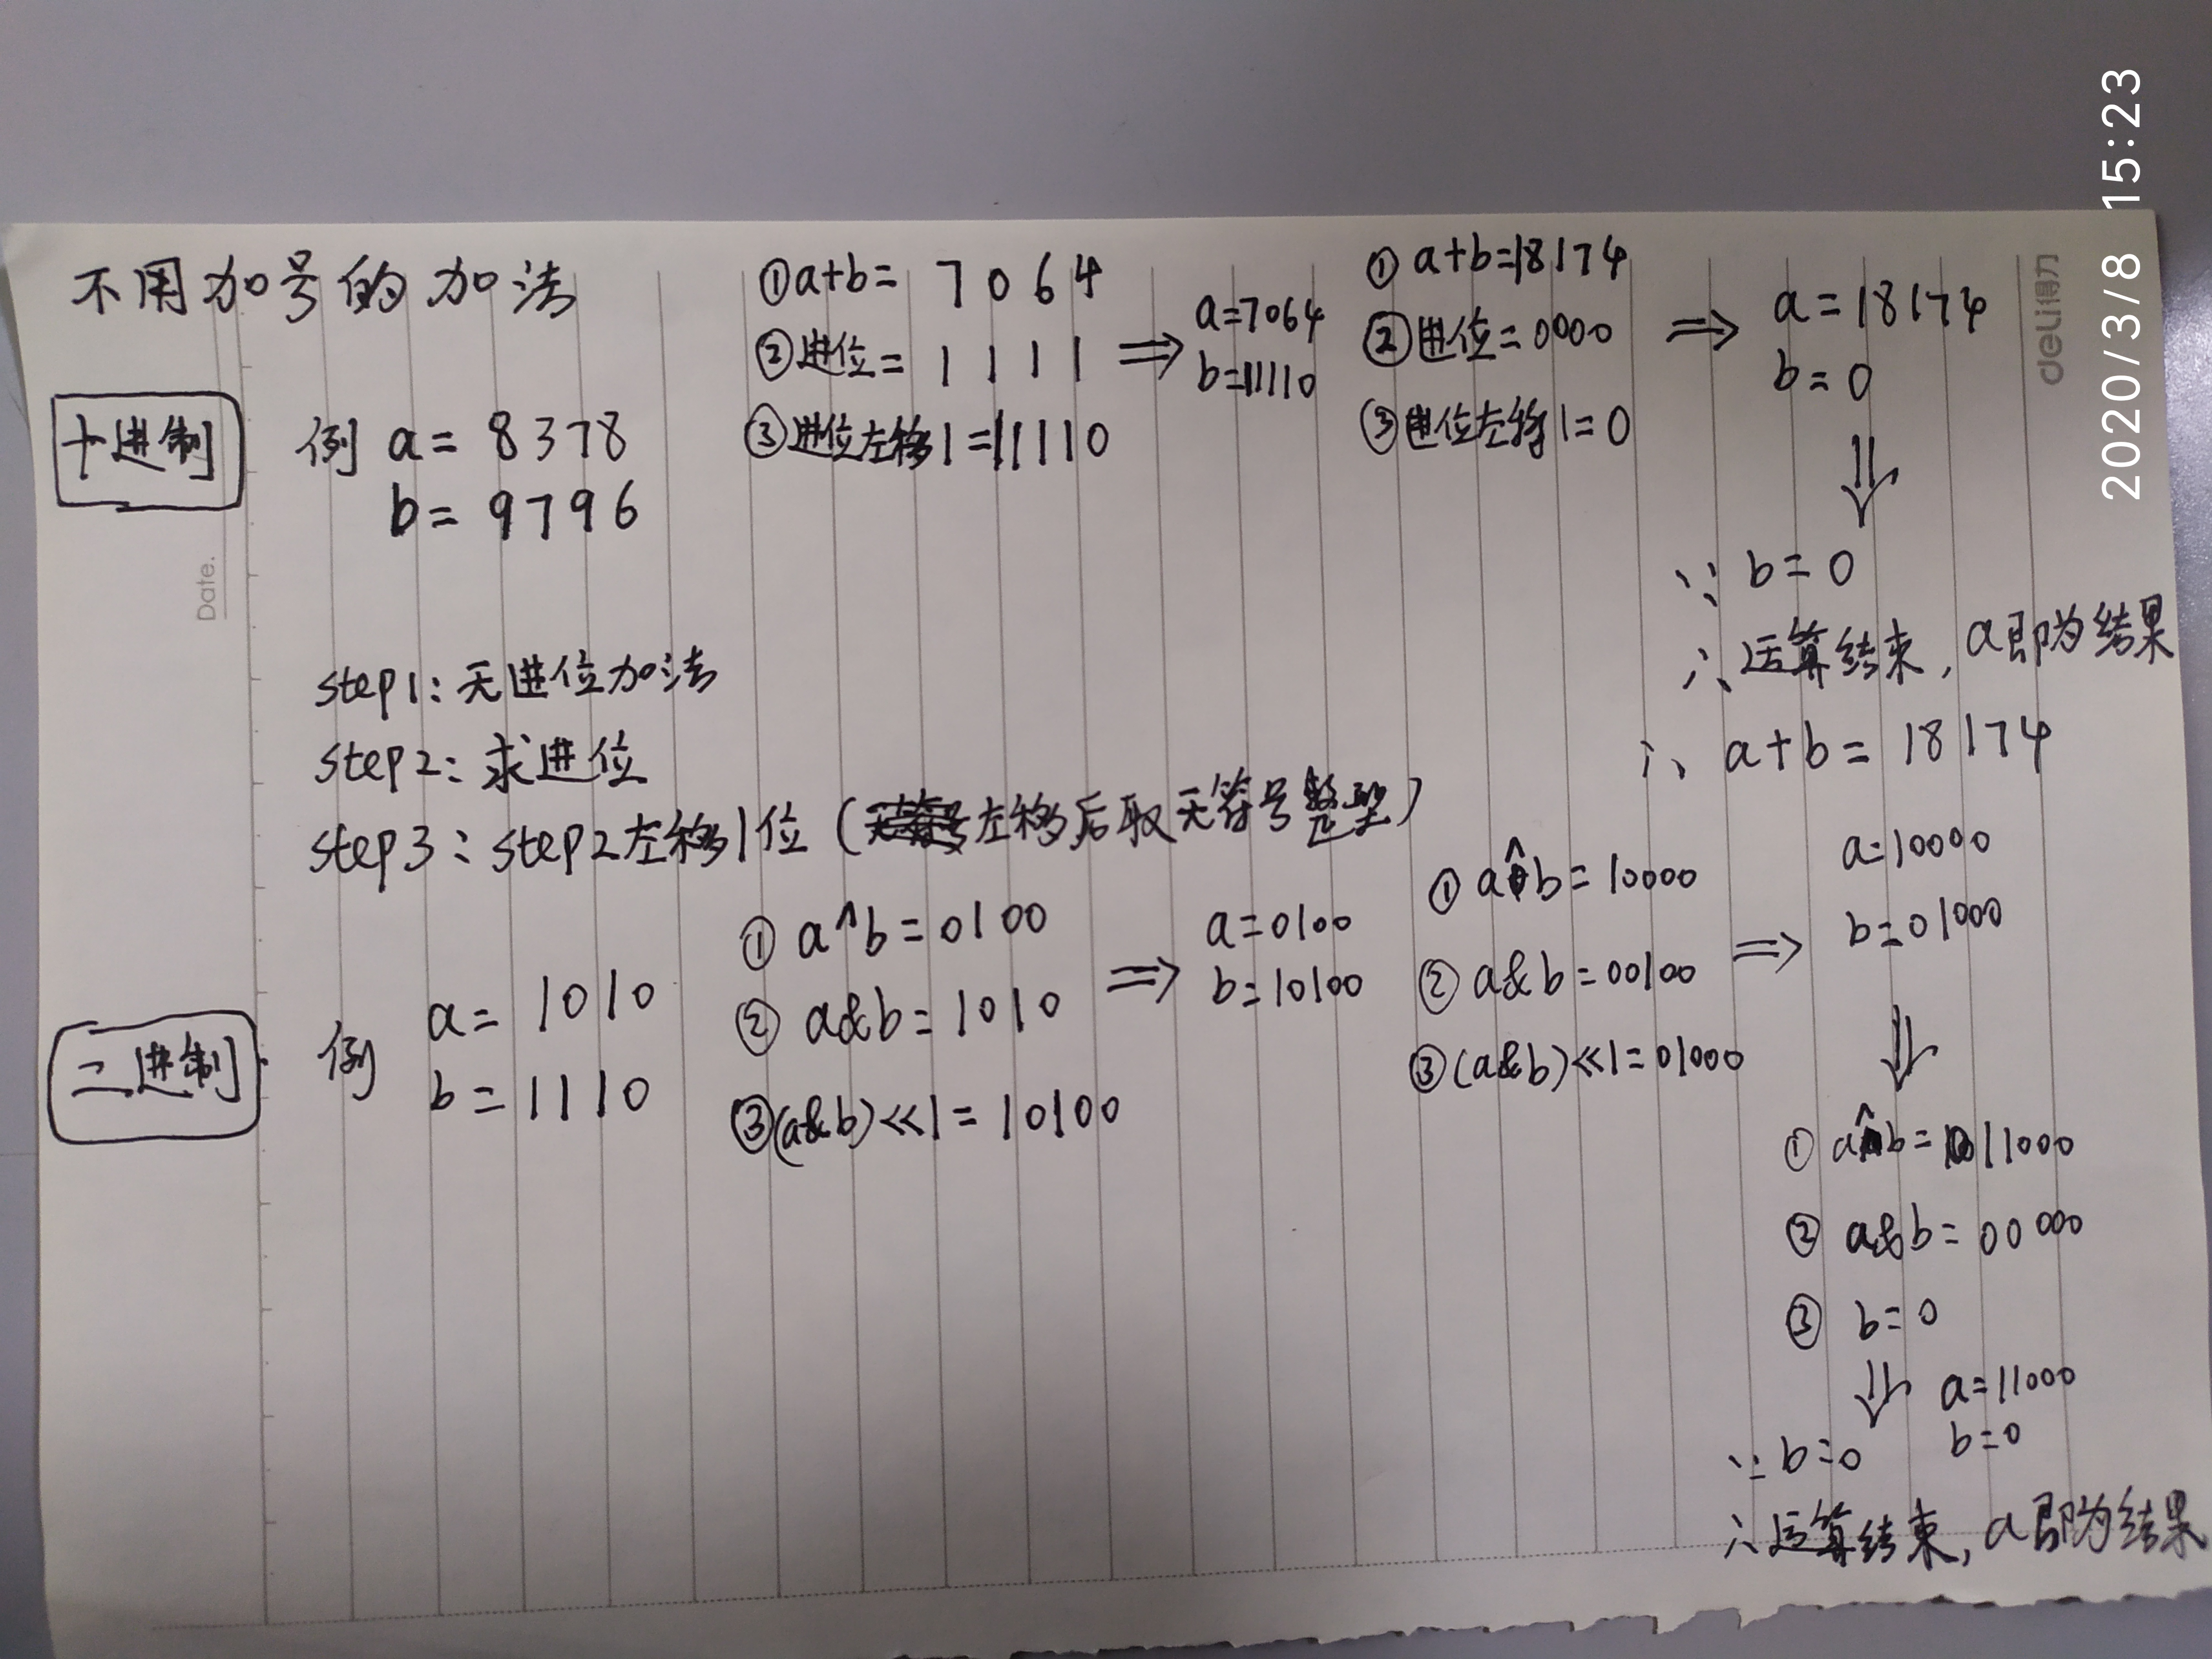 不用加号的加法
十进制
例 a = 8 3 7 8
b = 9 7 9 6
①a+b= 7 0 6 4
②进位= 1 1 1 1
③进位左移1=11110
⇒
a=7064
b=11110
① a+b=18174
②进位=0000
③进位左移1=0
⇒
a=18174
b=0
⇓
∵ b=0
∴ 运算结束, a即为结果
∴ a+b= 18174
Date.
step1:无进位加法
step2:求进位
step3:step2左移1位(左移后取无符号类型)
二进制
例 a= 1010
b=1110
① a^b=0100
② a&b=1010
③(a&b)<<1=10100
⇒
a=0100
b=10100
① a^b=10000
② a&b=00100
③(a&b)<<1=01000
⇒
a=10000
b=01000
⇓
① a^b=11000
② a&b=00000
③ b=0
⇓
a=11000
b=0
∵b=0
∴运算结束, a即为结果
deli得力
2020/3/8 15:23